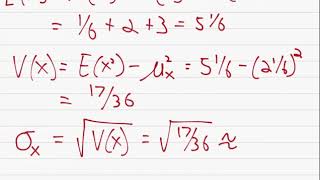 = 1/6 + 2 + 3 = 5 1/6
V(x) = E(x²) - μₓ² = 5 1/6 - (2 1/6)²
= 17/36
σₓ = √V(x) = √17/36 ≈